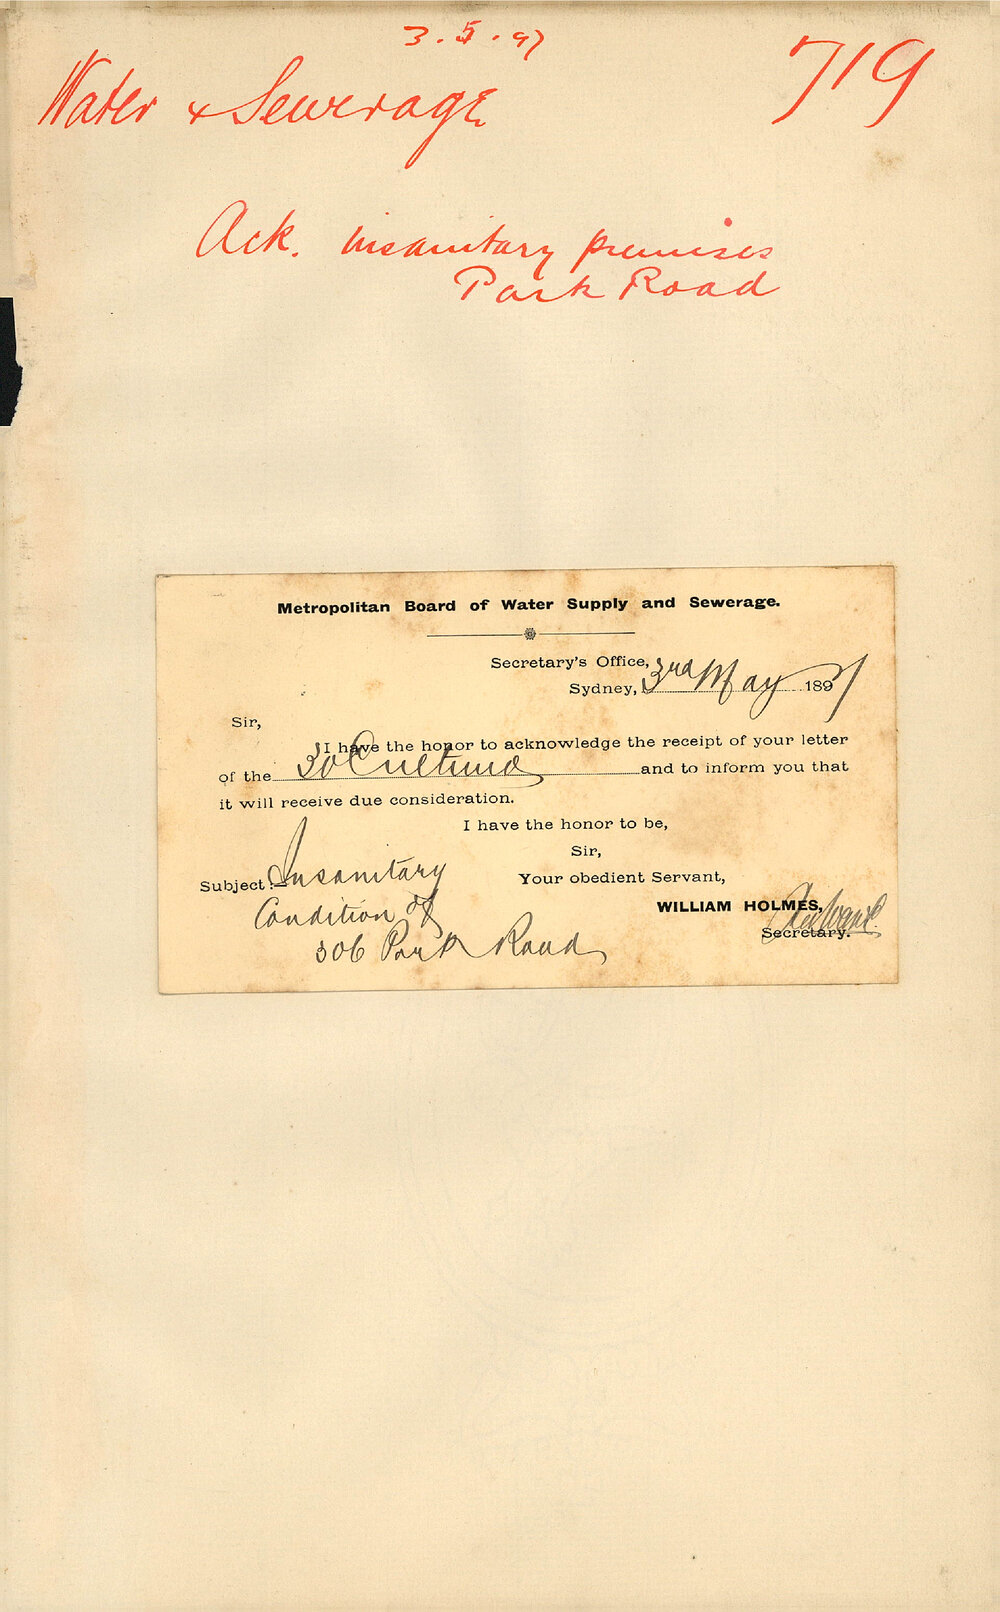 3.5.97
719
Water & Sewerage
Ack. insanitary premises
Park Road
Metropolitan Board of Water Supply and Sewerage.
Secretary's Office,
Sydney, 3rd May 1897
Sir,
I have the honor to acknowledge the receipt of your letter
of the 30 and to inform you that
it will receive due consideration.
I have the honor to be,
Sir,
Subject:- Insanitary
Your obedient Servant,
Condition of
WILLIAM HOLMES,
306 Park Road
Secretary.